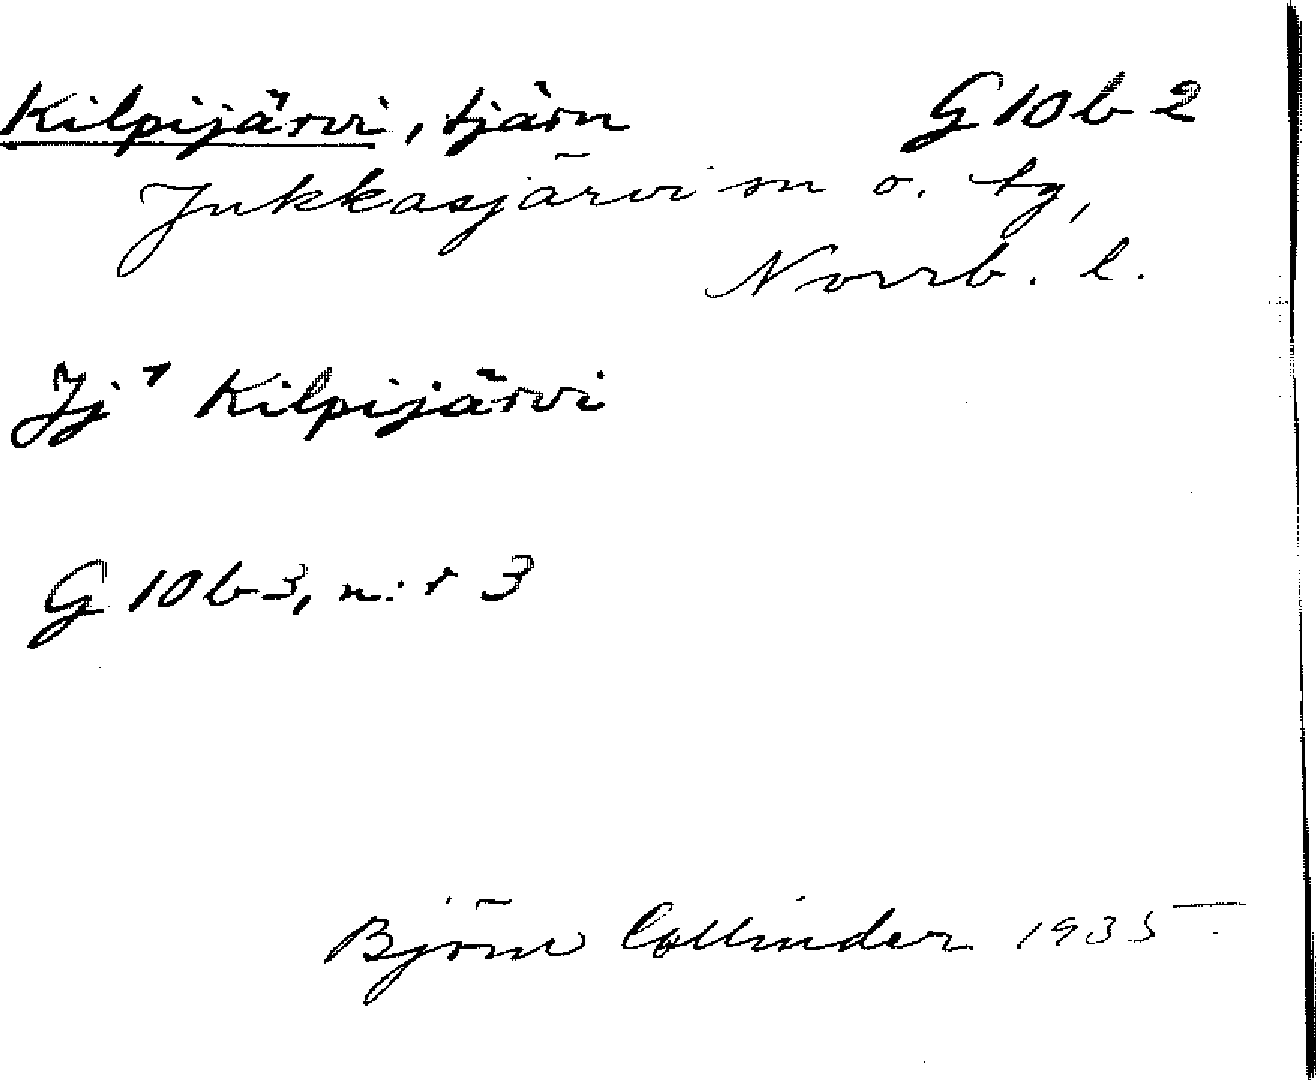 Kilpijärvi, tjärn G 10 b 2
Jukkasjärvi sn o. tg,
Norrb. l.
Jj⁷ Kilpijärvi
G 10 b 3, n:r 3
Björn Collinder 1935.